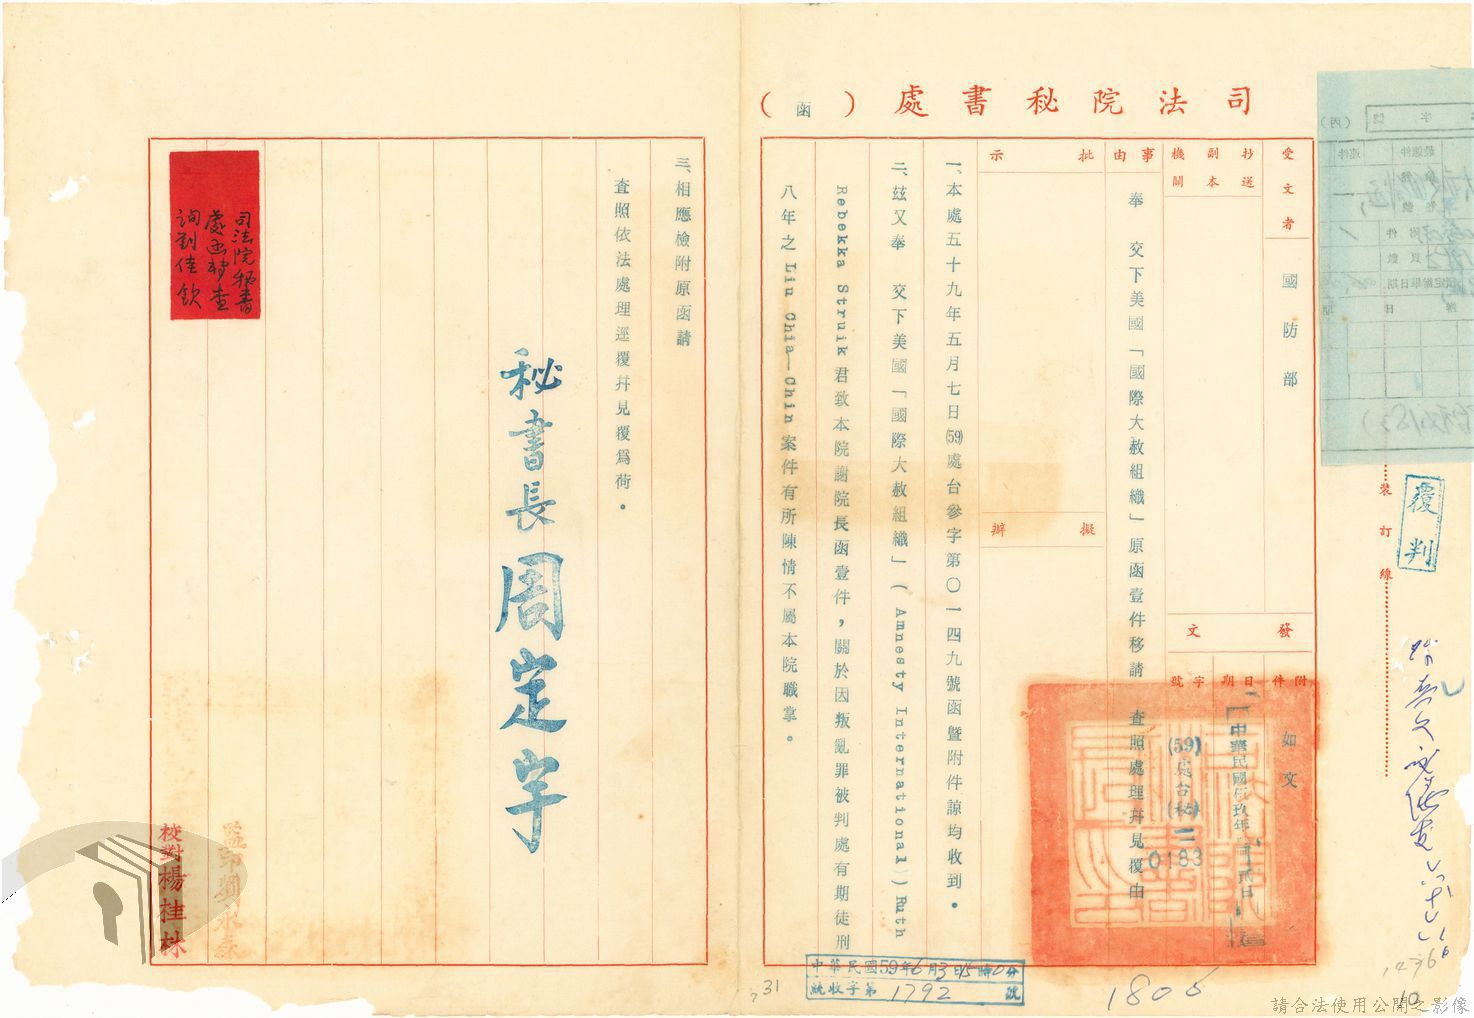 司法院秘書處（函）
受文者
國防部
抄送副本機關
事由
奉　交下美國「國際大赦組織」原函壹件移請　查照處理幷見覆由
發文
附件
如文
日期
中華民國伍玖年
貳日
字號
(59)處台(秘)二
0183
批示
擬辦
一、本處五十九年五月七日(59)處台參字第〇一四九號函暨附件諒均收到。
二、茲又奉　交下美國「國際大赦組織」(Amnesty International) Ruth
Rebekka Struik君致本院謝院長函壹件，關於因叛亂罪被判處有期徒刑
八年之Liu Chia—Chin案件有所陳情不屬本院職掌。
三、相應檢附原函請
查照依法處理逕覆幷見覆爲荷。
秘書長周定宇
司法院秘書
處函移查
詢劉佳欽
監印
校對楊桂林
裝訂線
覆判
中華民國59年6月3日15時0分
統收字第1792號
1806
31
10
請合法使用公開之影像